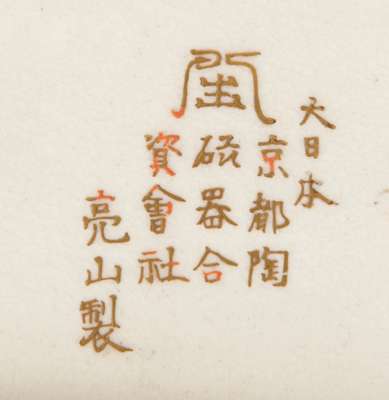 大日本
京都陶
磁器合
資會社
亮山製